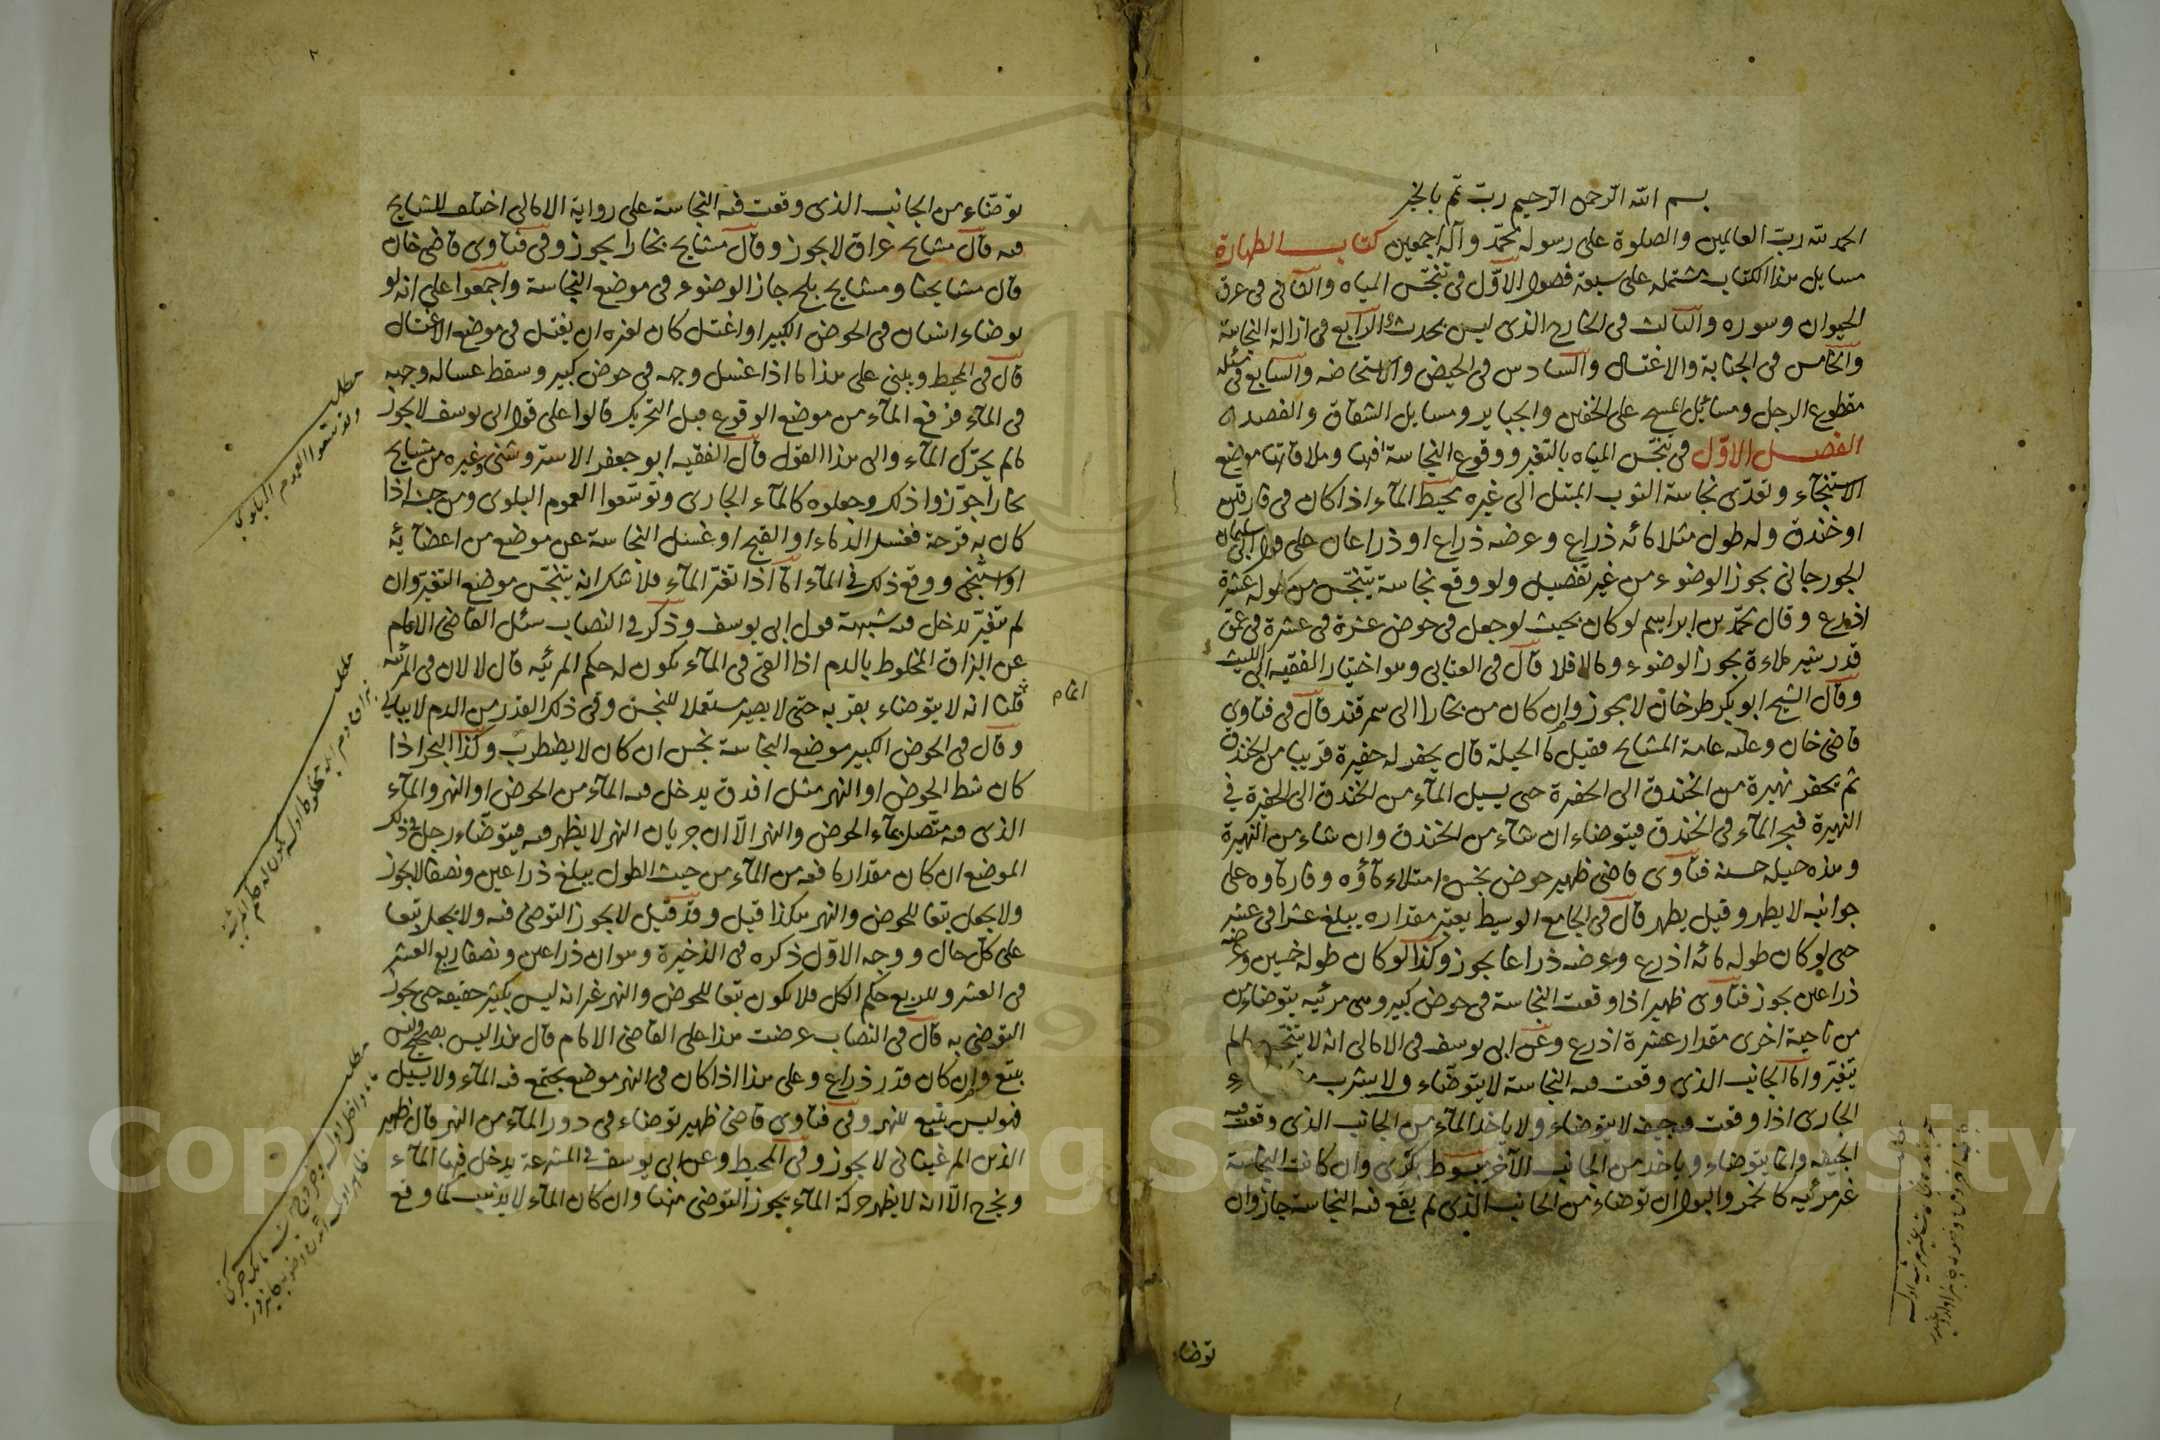 بسم الله الرحمن الرحيم ربّ تمّ بالخير
الحمد لله ربّ العالمين والصلوة على رسوله محمّد وآله اجمعين كتاب الطهارة
مسايل هذا الكتاب مشتمله على سبعة فصول الاوّل فى تنجّس المياه والثانى فى عرق
الحيوان وسوره والثالث فى الخارج الذى ليس بحدث والرابع فى ازالة النجاسة
والخامس فى الجنابة والاغتسال والسادس فى الحيض والاستحاضه والسابع فى مسئلة
مقطوع الرجل ومسائل المسح على الخفين والجباير ومسايل الشقاق والفصد
الفصل الاوّل فى تنجّس المياه بالتغير ووقوع النجاسة فيها وملاقاتها موضع
الاستنجاء وتعدّى نجاسة الثوب المبتل الى غيره محيط الماء اذا كان فى فارقين
او خندق وله طول مثلا مائه ذراع وعرضه ذراع او ذراعان على قول ابى سليمان
الجورجانى يجوز الوضوء من غير تفصيل ولو وقع نجاسة يتنجّس من طوله عشرة
اذرع وقال محمّد بن ابراهيم لو كان بحيث لو جعل فى حوض عشرة فى عشرة فى عمق
قدر شبر ملاءة يجوز الوضوء والا فلا قال فى العتابى وهو اختيار الفقيه ابى الليث
وقال الشيخ ابو بكر طرخان لا يجوز وان كان من بخارا الى سمرقند قال فى فتاوى
قاضى خان وعليه عامة المشايخ فقيل ما الحيلة قال يحفر له حفيرة قريبا من الخندق
ثم يحفر نهيرة من الخندق الى الحفرة حتى يسيل المآء من الخندق الى الحفرة فى
النهيرة فيجر المآء فى الخندق فيتوضاء ان شآء من الخندق وان شاء من النهيرة
وهذه حيله حسنة فتاوى قاضى ظهير حوض نجس امتلاء مآؤه وفار مآوه على
جوانبه لا يطهر وقيل يطهر قال فى الجامع الوسيط يعتبر مقداره يبلغ عشرا فى عشر
حتى لو كان طوله مائه اذرع وعرضه ذراعا يجوز وكذا لو كان طوله خمسين وعرضه
ذراعين يجوز فتاوى ظهير اذا وقعت النجاسة فى حوض كبير وهى مرئيه يتوضاء من
من ناحية اخرى مقدار عشرة اذرع وعن ابى يوسف فى الامالى انه لا يتنجّس ما لم
يتغيّر واما الجانب الذى وقعت فيه النجاسة لا يتوضّاء ولا يشرب
الجارى اذا وقعت جيفه لا يتوضاء ولا ياخذ المآء من الجانب الذى وقعت فيه
الجيفه وانما يتوضاء وياخذ من الجانب الآخر وان كانت النجاسة
غير مرئيه كالخمر والبول ان توضاء من الجانب الذى لم يقع فيه النجاسة جاز وان
توضاء
٨
توضّاء من الجانب الذى وقعت فيه النجاسة على رواية الامالى اختلف المشايخ
فيه قال مشايخ عراق لا يجوز وقال مشايخ بخارا يجوز وفى فتاوى قاضى خان
قال مشايخنا ومشايخ بلخ جاز الوضوء فى موضع النجاسة واجمعوا على انه لو
توضاء انسان فى الحوض الكبير او اغتسل كان لغيره ان يغتسل فى موضع الاغتسال
قال فى المحيط ويبنى على هذا ما اذا غسل وجهه فى حوض كبير وسقط غساله وجهه
فى المآء فرفع المآء من موضع الوقوع قبل التحريك قالوا على قول ابى يوسف لا يجوز
مالم يحرّك المآء والى هذا القول قال الفقيه ابو جعفر الاستروشنى وغيره من مشايخ
بخارا جوّزوا ذلك وجعلوه كالمآء الجارى وتوسّعوا العموم البلوى ومن جنسه اذا
كان به قرحة فغسل الدماء او القيح او غسل النجاسة عن موضع من اعضآئه
او استنجى ووقع ذلك فى المآء امّا اذا تغيّر المآء فلا شك انه يتنجّس موضع التغيّر وان
لم يتغيّر يدخل فيه شبهة قول ابى يوسف وذكر فى النصاب سئل القاضى الامام
عن البزاق المخلوط بالدم اذا القى فى المآء يكون له حكم المرئيه قال لا لان فى المرئيه
قلنا انه لا يتوضاء بقربه حتى لا يصير مستعملا للنجس وفى ذكر القدر من الدم لا يبالى
وقال فى الحوض الكبير موضع النجاسة نجس ان كان لا يضطرب وكذا البحر اذا
كان شط الحوض او النهر مثل افدق يدخل فيه المآء من الحوض او النهر والمآء
الذى فيه متّصل بمآء الحوض والنهر الّا ان جريان النهر لا يظهر فيه فيتوضّاء رجل فى ذلك
الموضع ان كان مقدار ما فيه من المآء من حيث الطول يبلغ ذراعين ونصفا لا يجوز
ولا يجعل تبعا للحوض والنهر هكذا قيل وقد قيل لا يجوز التوضى فيه ولا يجعل تبعا
على كلّ حال ووجه الاوّل ذكره فى الذخيرة وهو ان ذراعين ونصفا ربع العشر
فى العشر وللربع حكم الكل فلا يكون تبعا للحوض والنهر غير انه ليس بكثير حقيقه حتى يجوز
التوضى به قال فى النصاب عرضت هذا على القاضى الامام قال هذا ليس بصحيح وليس
بتبع وان كان قدر ذراع وعلى هذا اذا كان فى النهر موضع يجتمع فيه المآء ولا يسيل
فهو ليس بتبع للنهر وفى فتاوى قاضى ظهير توضاء فى دور المآء من النهر قال ظهير
الدين المرغينانى لا يجوز وفى المحيط وعن ابى يوسف فى المشرعة يدخل فيها المآء
ويخرج الّا انه لا يظهر حركة المآء يجوز التوضى منها وان كان المآء لا يذهب كما وقع
مطلب
وتوسعوا العموم البلوى
مطلب
مطلب
Copyright © King Saud University